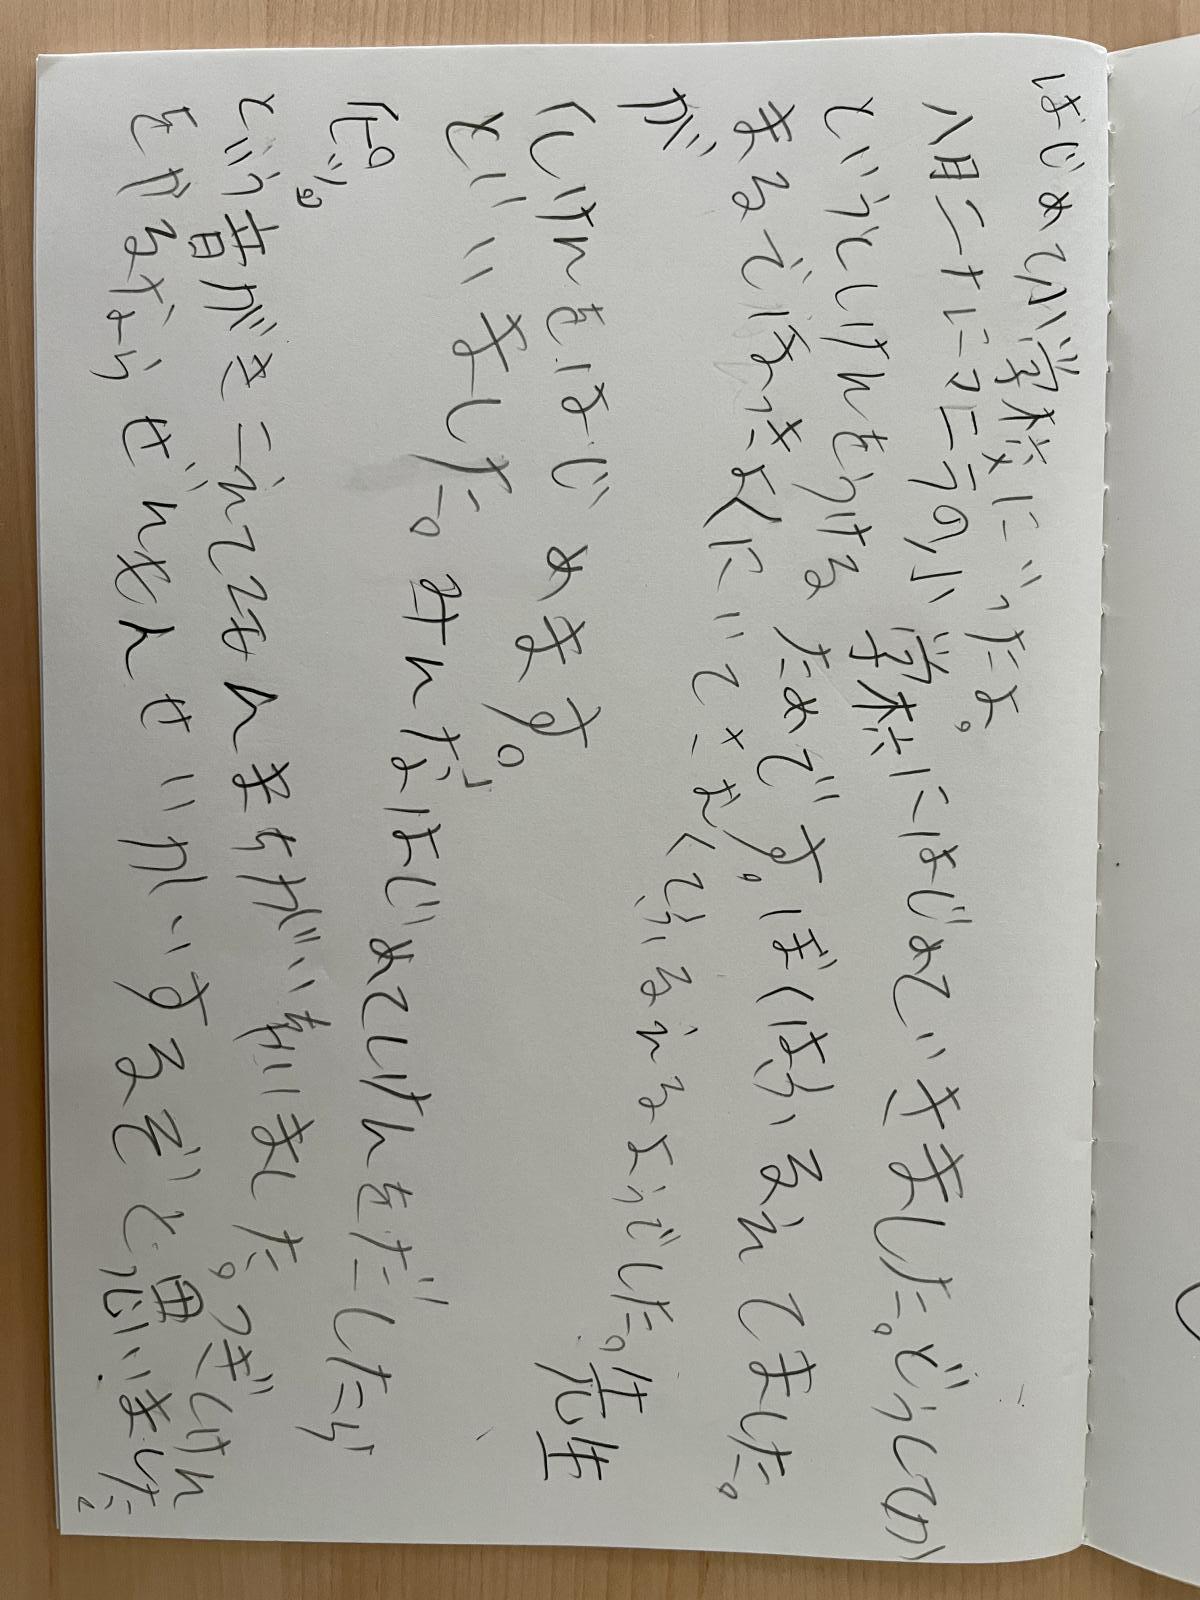 はじめて小学校にいったよ。
八月二十に日三うの小学校にはじめていきました。どうしてか
というとしけんをうけるためです。ぼくはふるえてました。
まるでほっきょくにいてさむくてふるえるようでした。先生
が
しけんをはじめます。
といいました。みんなはじめてしけんをだしたら
ピッ。
という音がきこえてぜんもんまちがいました。つぎしけん
をやるならぜんもんせいかいするぞと思いました。